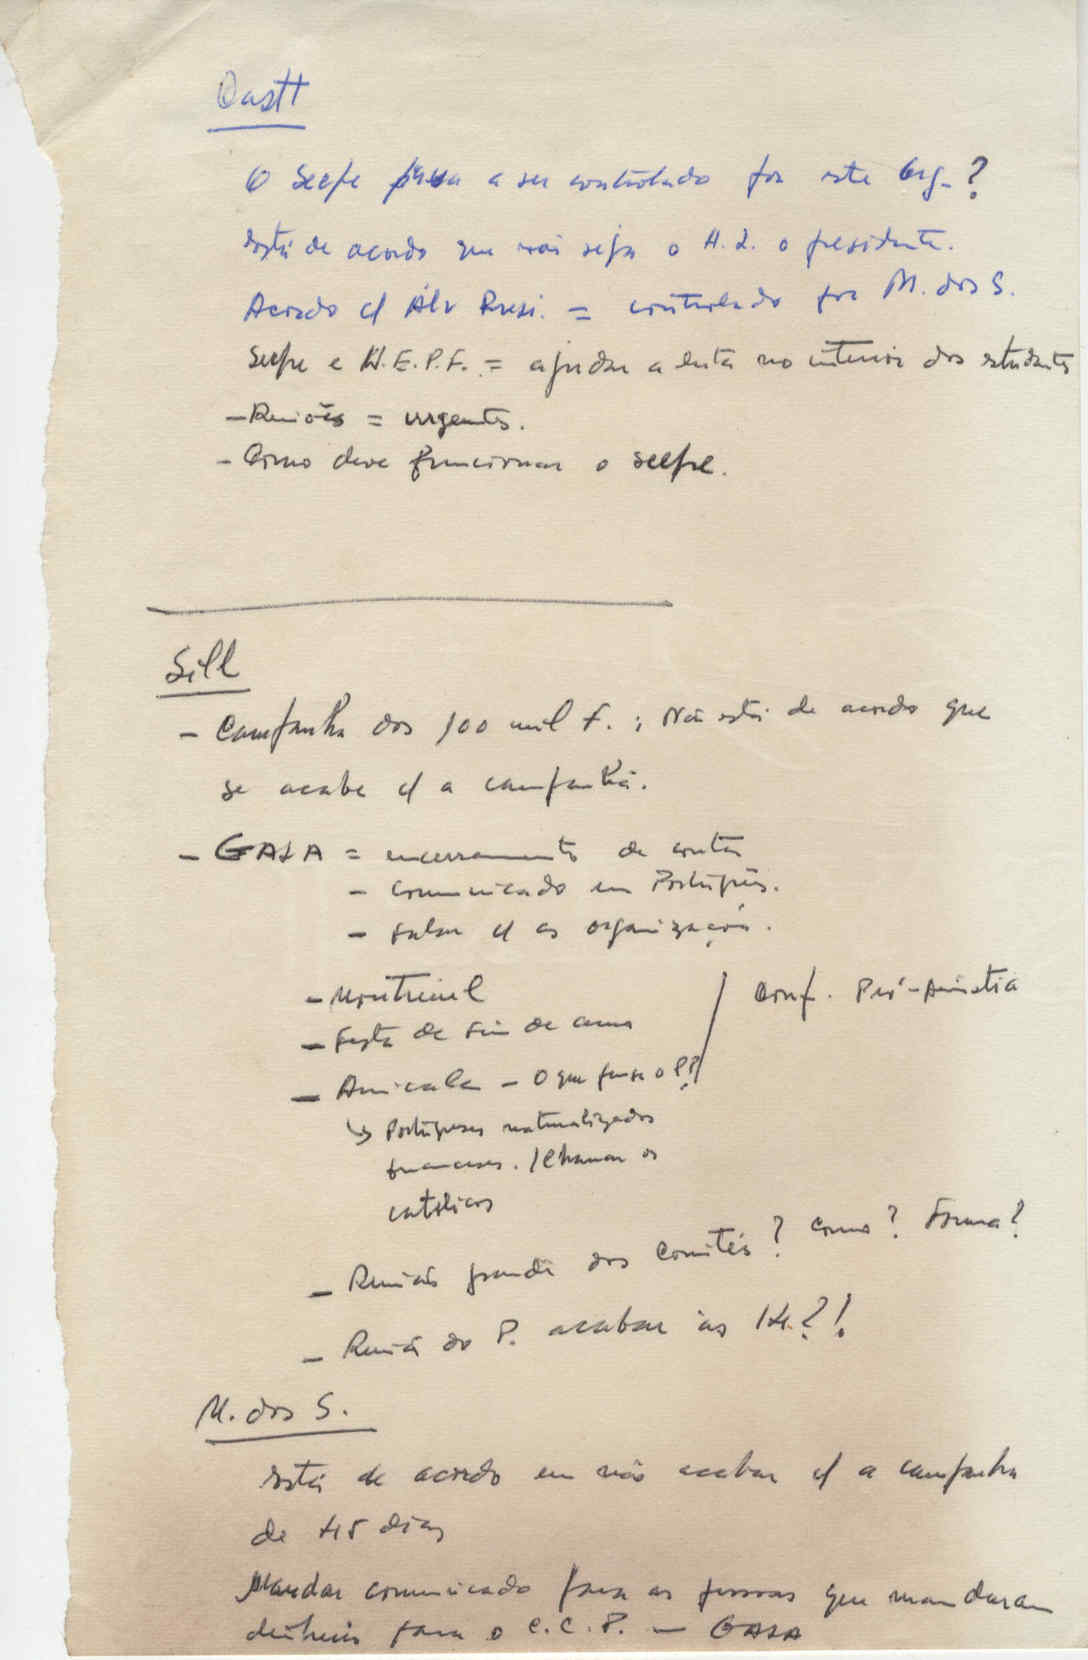 O Seepe passa a ser controlado por este Org. ?
Está de acordo que não seja o H. L. o presidente.
Acordo c/ Álv Presi. = controlado por M. dos S.
Seepe e W.E.P.F. = ajudar a luta no interior dos estudantes
- Reuniões = urgentes.
- Como deve funcionar o seepe.
Sill
- Campanha dos 100 mil F. ; Não está de acordo que
se acabe c/ a campanha.
- GASA = encerramento de contas
- Comunicado em Português.
- Falar c/ as organizações.
- Montreuil
- Festa de fim de ano
Conf. Pró-Amnistia
- Amicale - O que pensa o P?
↳ Portugueses naturalizados
franceses. / Chamar os
católicos
- Reunião grande dos Comités ? Como ? Forma ?
- Reunião do P. acabar às 1H. ? !
M. dos S.
Está de acordo em não acabar c/ a campanha
de 45 dias
Mandar comunicado para as pessoas que mandaram
dinheiro para o C.C.P. - GASA